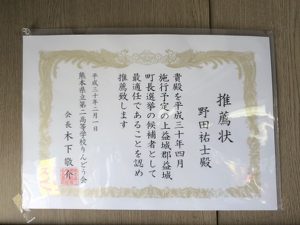 推薦状
野田祐士殿
貴殿を平成三十年四月
施行予定の上益城郡益城
町長選挙の候補者として
最適任であることを認め
推薦致します
平成三十年二月一日
熊本県立第二高等学校りんどう会
会長木下敬介